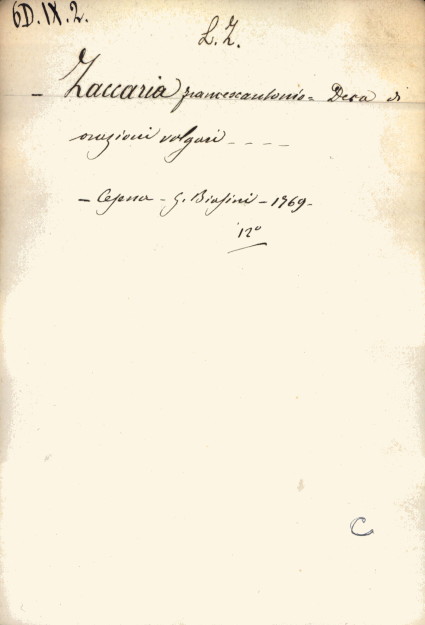 6D.IX.2.
L.Z.
- Zaccaria Francescantonio = Deca di
orazioni volgari - - - -
- Cesena - G. Biasini - 1769 -
12º
C